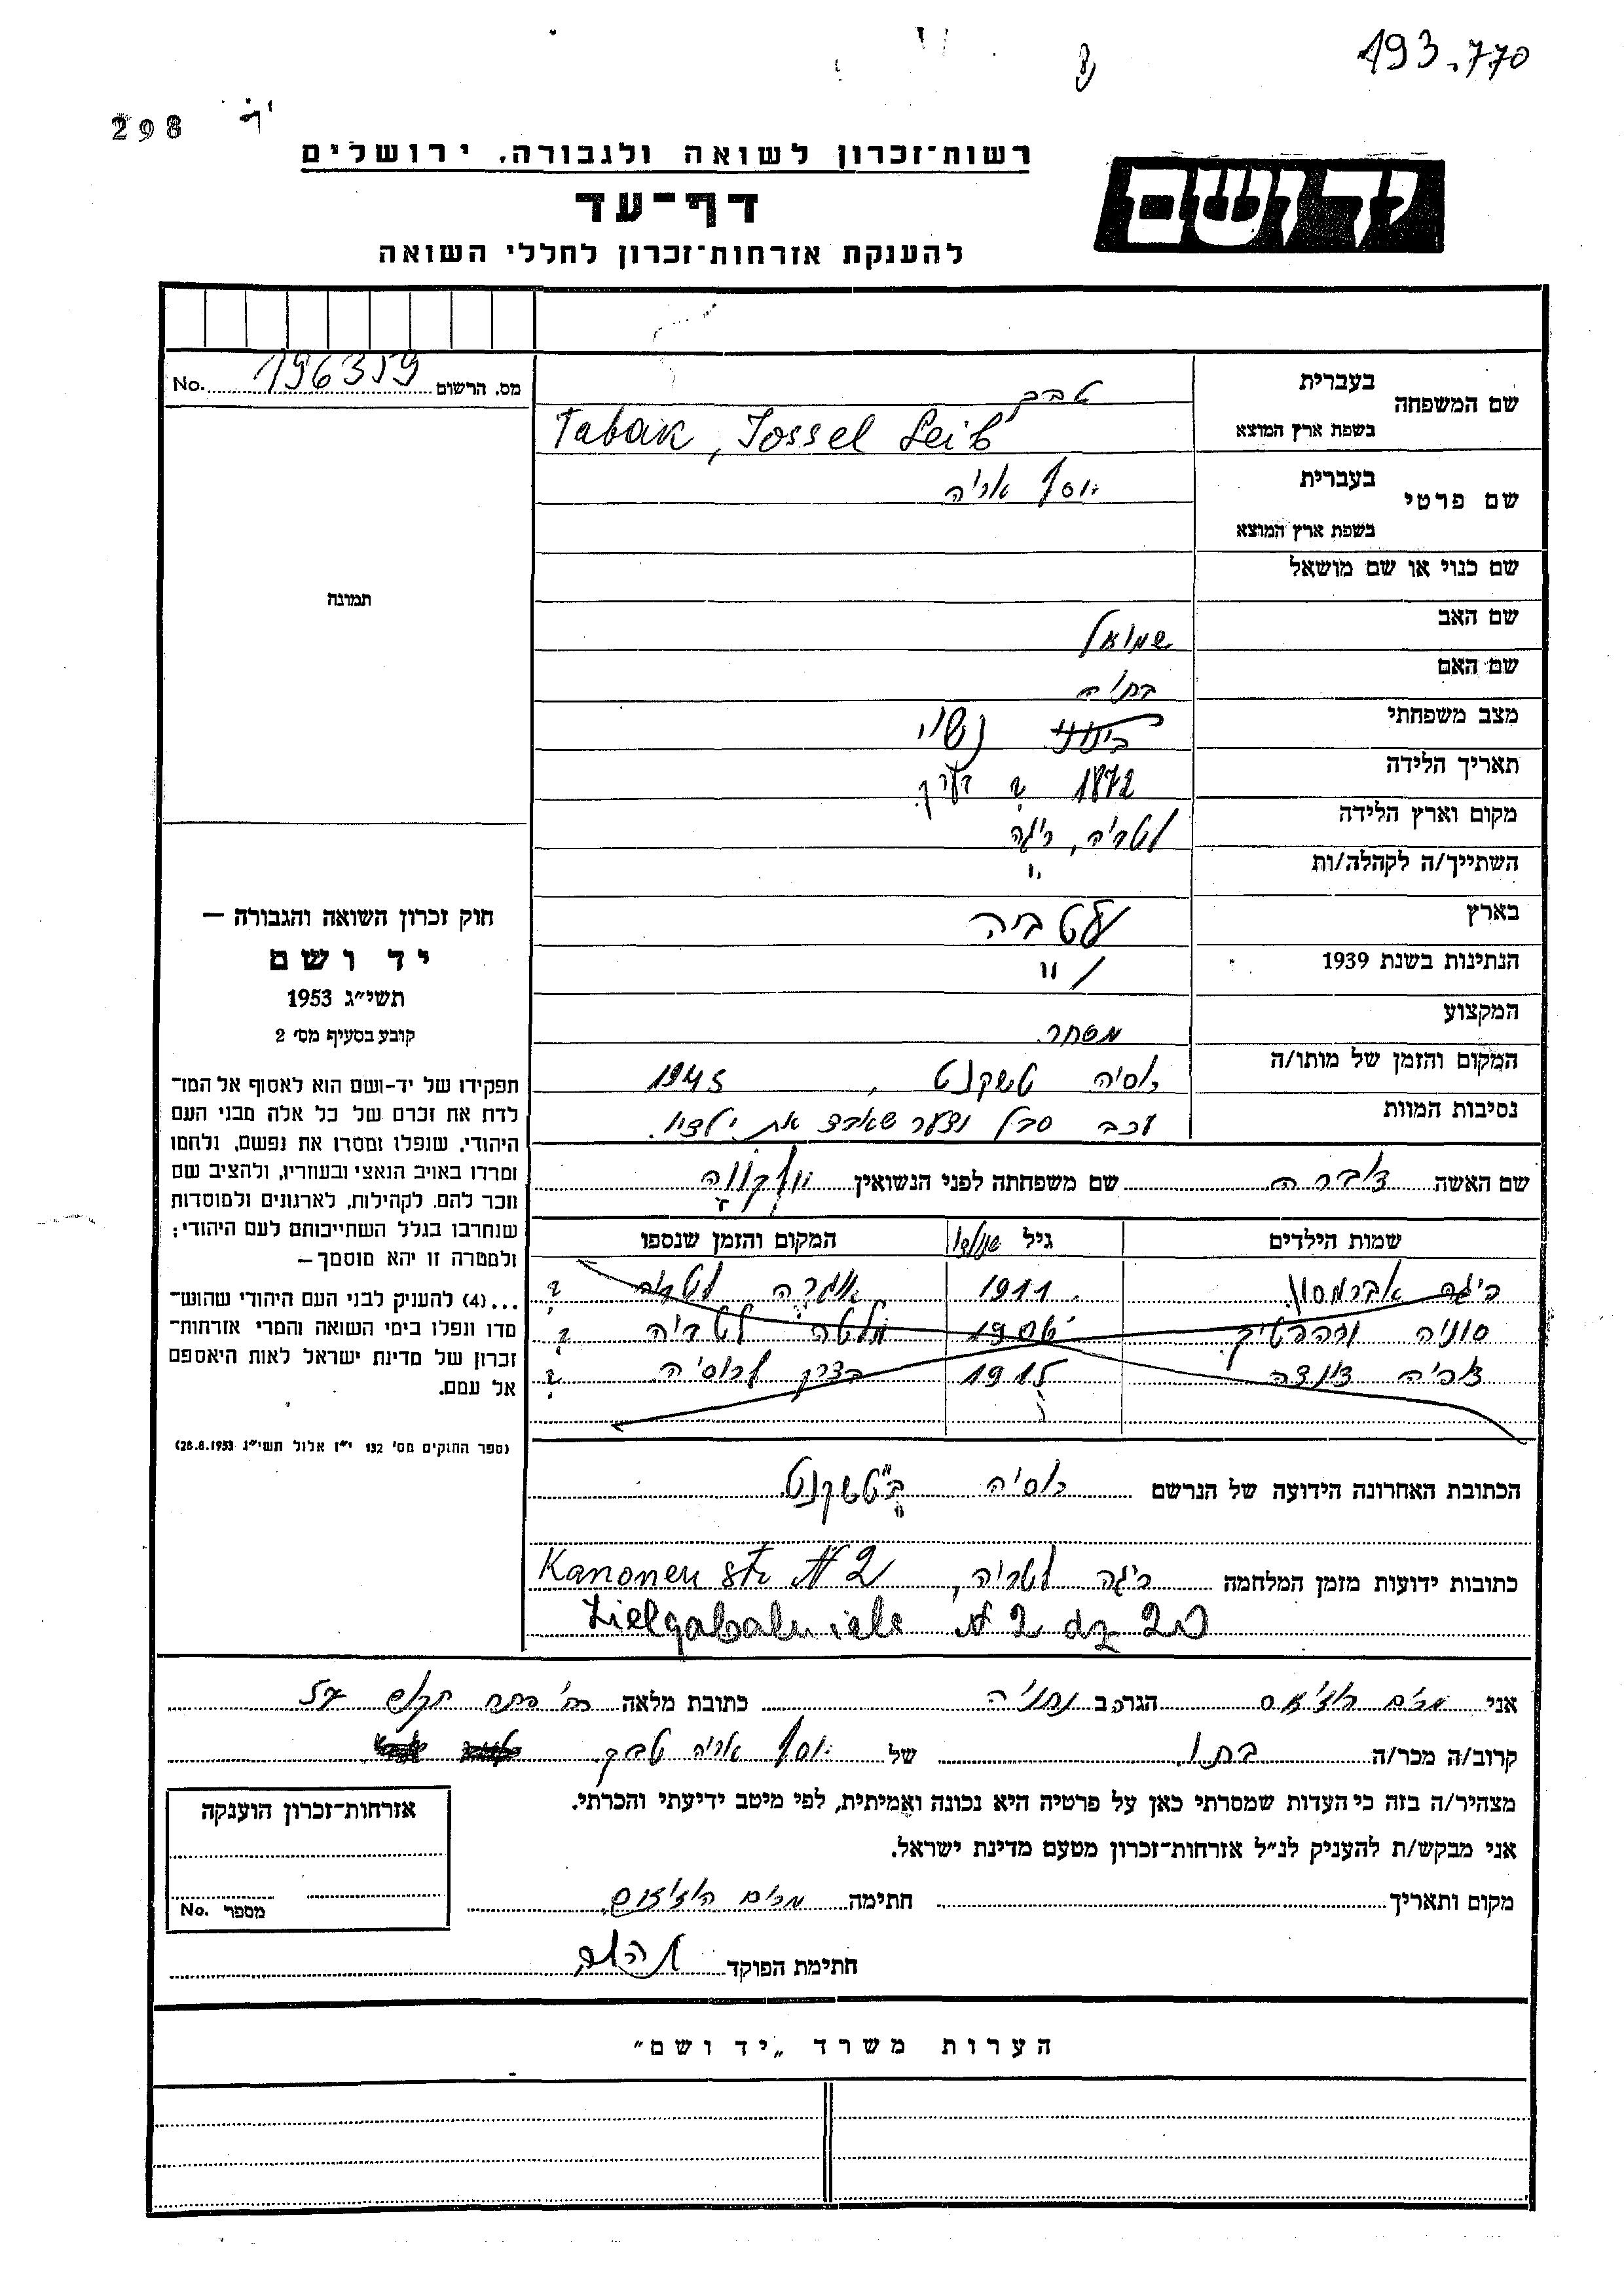 193.770
298
רשות־זכרון לשואה ולגבורה, ירושלים
יד ושם
דף־עד
להענקת אזרחות־זכרון לחללי השואה
מס. הרשום 196359 No.
שם המשפחה בעברית טבק
בשפת ארץ המוצא Tabak, Jossel Leib
שם פרטי בעברית יוסף אריה
בשפת ארץ המוצא
שם כנוי או שם מושאל
תמונה
שם האב שמואל
שם האם בתיה
מצב משפחתי נשוי
תאריך הלידה 1872 ? בערך
מקום וארץ הלידה לטביה, ריגה
השתייך/ה לקהלה/ות "
בארץ לטביה
הנתינות בשנת 1939 "
המקצוע מסחר
המקום והזמן של מותו/ה רוסיה טשקנט, 1945
נסיבות המוות עקב סבל וצער שאבד את ילדיו.
חוק זכרון השואה והגבורה —
יד ושם
תשי״ג 1953
קובע בסעיף מס׳ 2
תפקידו של יד-ושם הוא לאסוף אל המו־
לדת את זכרם של כל אלה מבני העם
היהודי, שנפלו ומסרו את נפשם, נלחמו
ומרדו באויב הנאצי ובעוזריו, ולהציב שם
וזכר להם, לקהילות, לארגונים ולמוסדות
שנחרבו בגלל השתייכותם לעם היהודי;
ולמטרה זו יהא מוסמך —
...(4) להעניק לבני העם היהודי שהוש־
מדו ונפלו בימי השואה והמרי אזרחות־
זכרון של מדינת ישראל לאות היאספם
אל עמם.
(ספר החוקים מס׳ 132 י״ז אלול תשי״ג 28.8.1953)
שם האשה דברה שם משפחתה לפני הנשואין
שמות הילדים גיל המקום והזמן שנספו
אברמסון 1911 לטביה ?
סוניה לטביה ?
צביה 1915 רוסיה ?
הכתובת האחרונה הידועה של הנרשם רוסיה טשקנט
כתובות ידועות מזמן המלחמה ריגה לטביה, Kanonen str N 2
Lielgabalu iela N 2 dz 20
אני מרים הגר ב נתניה כתובת מלאה רח׳ פתח תקוה 57
קרוב/ה מכר/ה בתו של יוסף אריה טבק
מצהיר/ה בזה כי העדות שמסרתי כאן על פרטיה היא נכונה ואמיתית, לפי מיטב ידיעתי והכרתי.
אני מבקש/ת להעניק לנ״ל אזרחות־זכרון מטעם מדינת ישראל.
מקום ותאריך חתימה מרים
חתימת הפוקד
אזרחות־זכרון הוענקה
מספר No.
הערות משרד „יד ושם״